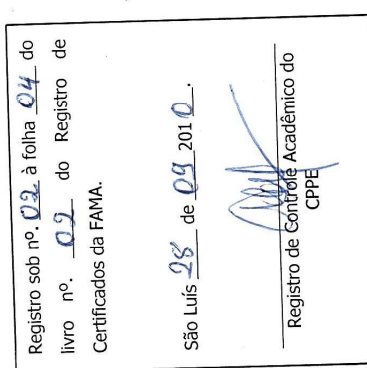 Registro sob nº. 02 à folha 04 do
livro nº. 02 do Registro de
Certificados da FAMA.
São Luís 28 de 09 2010.
Registro de Controle Acadêmico do
CPPE